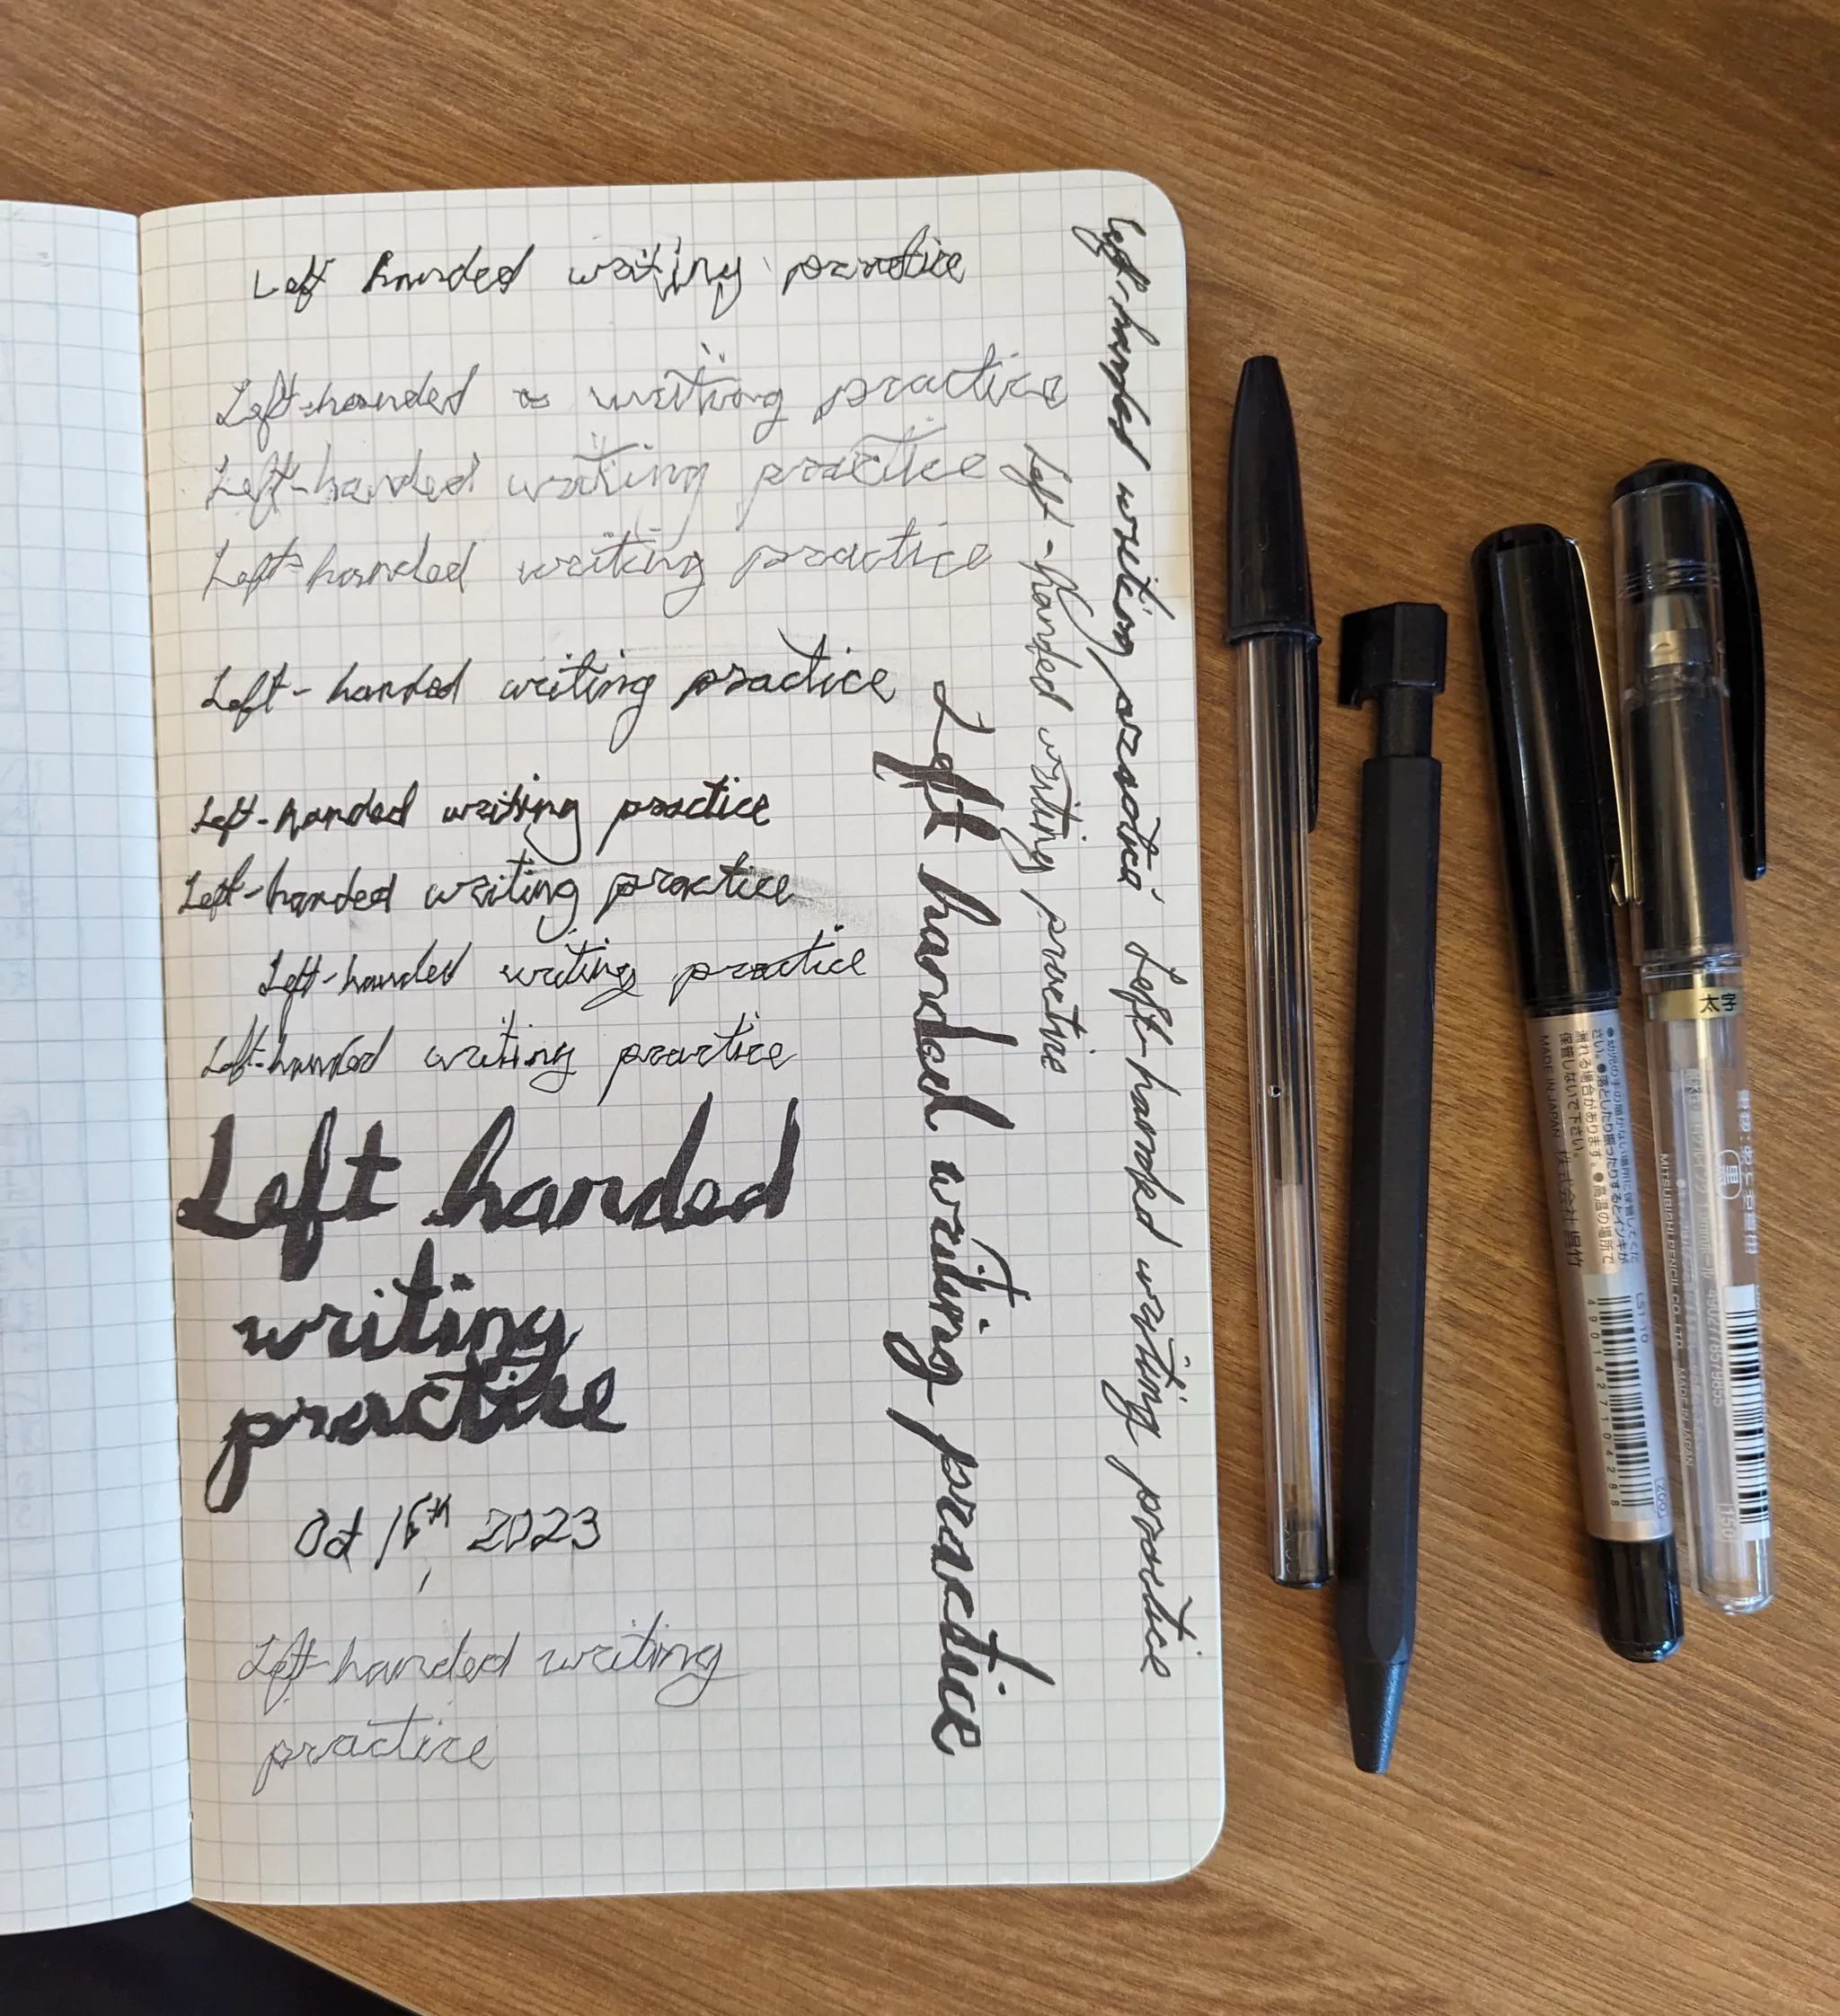 Left handed writing practice
Left-handed writing practice
Left-handed writing practice
Left-handed writing practice
Left-handed writing practice
Left-handed writing practice
Left-handed writing practice
Left-handed writing practice
Left-handed writing practice
Left handed
writing
practice
Oct 16th 2023
Left-handed writing
practice
Left handed writing practice
Left-handed writing practice
Left-handed writing practice Left-handed writing practice
さい。●落としたり振ったりするとインキが
漏れる場合があります。●高温の場所で
保管しないで下さい。
MADE IN JAPAN 株式会社呉竹
LS1-10
4901427104288
200
太字
黒
MITSUBISHI PENCIL CO., LTD. MADE IN JAPAN
4902778579855
150